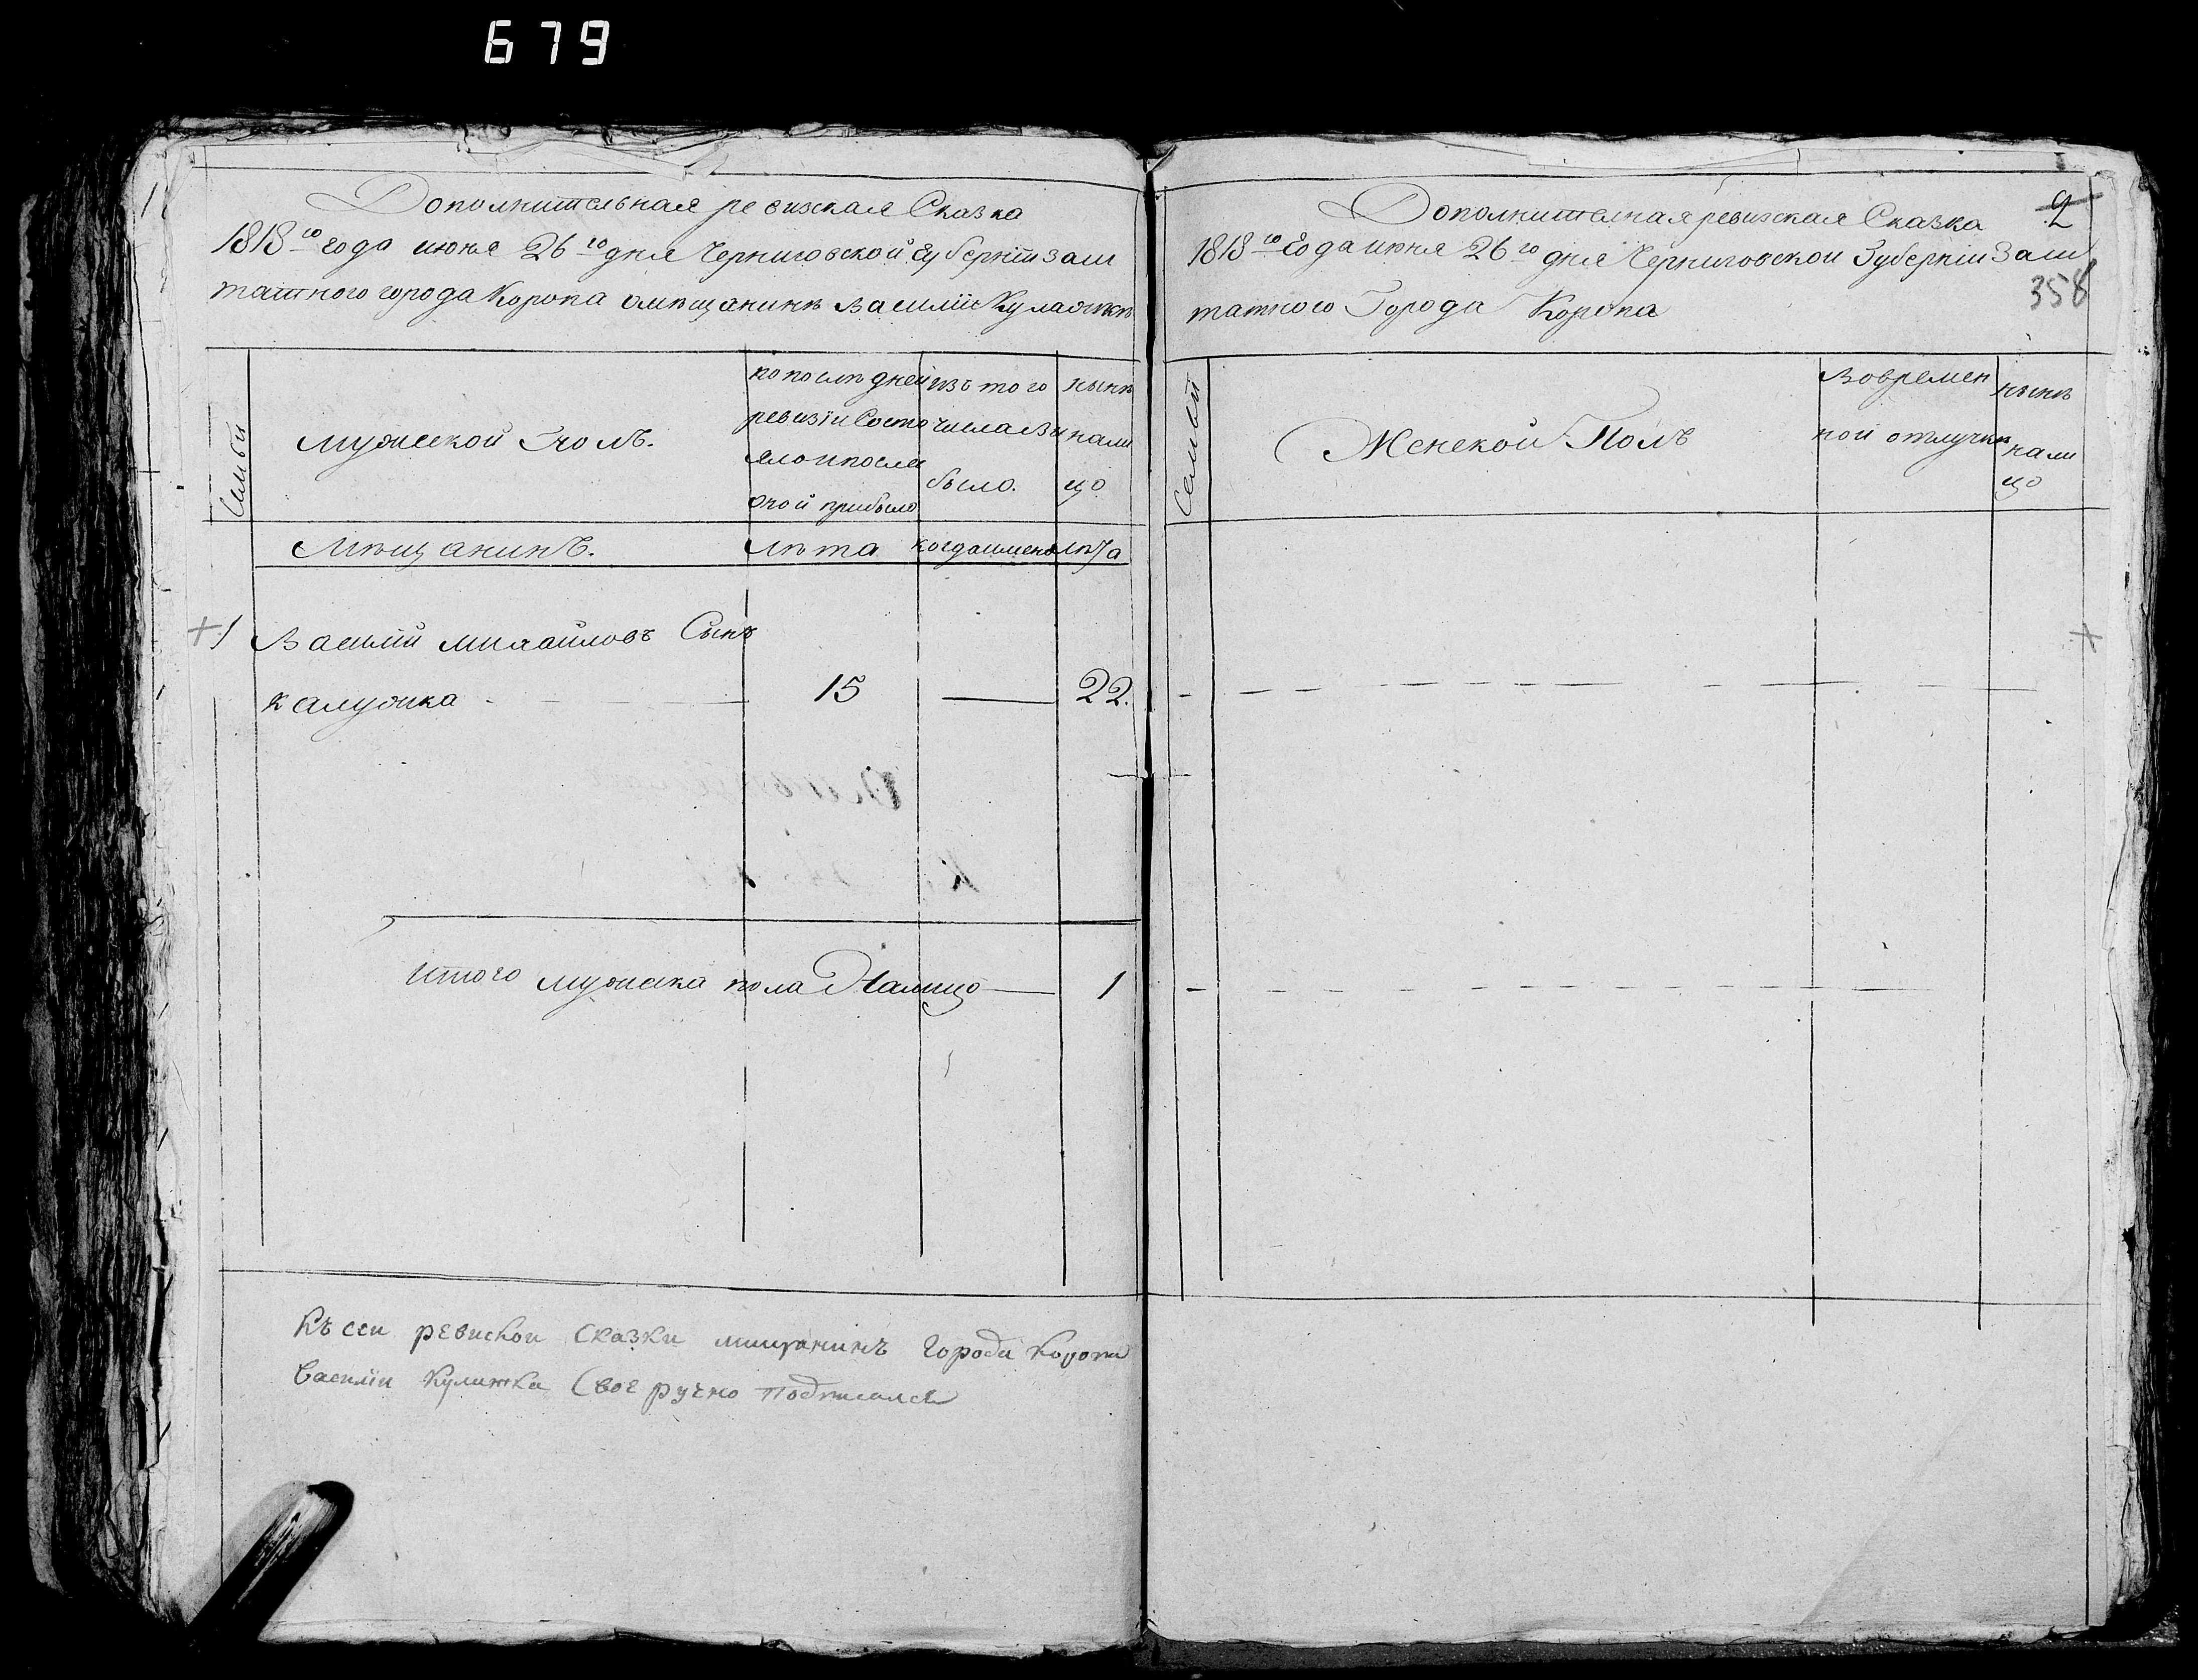 679
Дополнительная ревизская Сказка
1818го года июня 26го дня Черниговской Губернiи заш
татного города Коропа омѣщанинѣ Василiи
Семьи
мужеской Полъ.
попослѣдней
ревизiи Состо
яло ипосле
оной прибыло
изъ того
числа вы
было.
нынѣ
нали
цо
Мѣщанинъ.
лѣта
когда имено
лѣта
1 Василiй михайловъ Сынъ
калужка 15 22.
итого мужска пола Налицо 1
Къ сеи ревискои сказки мищанинъ города коропа
Василiи Кулажка Своеручно подписался
2
Дополнителная ревизская Сказка
1818го Года июня 26го дня Черниговской Губернiи Заш
358
татного Города Коропа
Семьи
Женской Полъ
Вовремен
ной отлучки
нынѣ
нали
цо